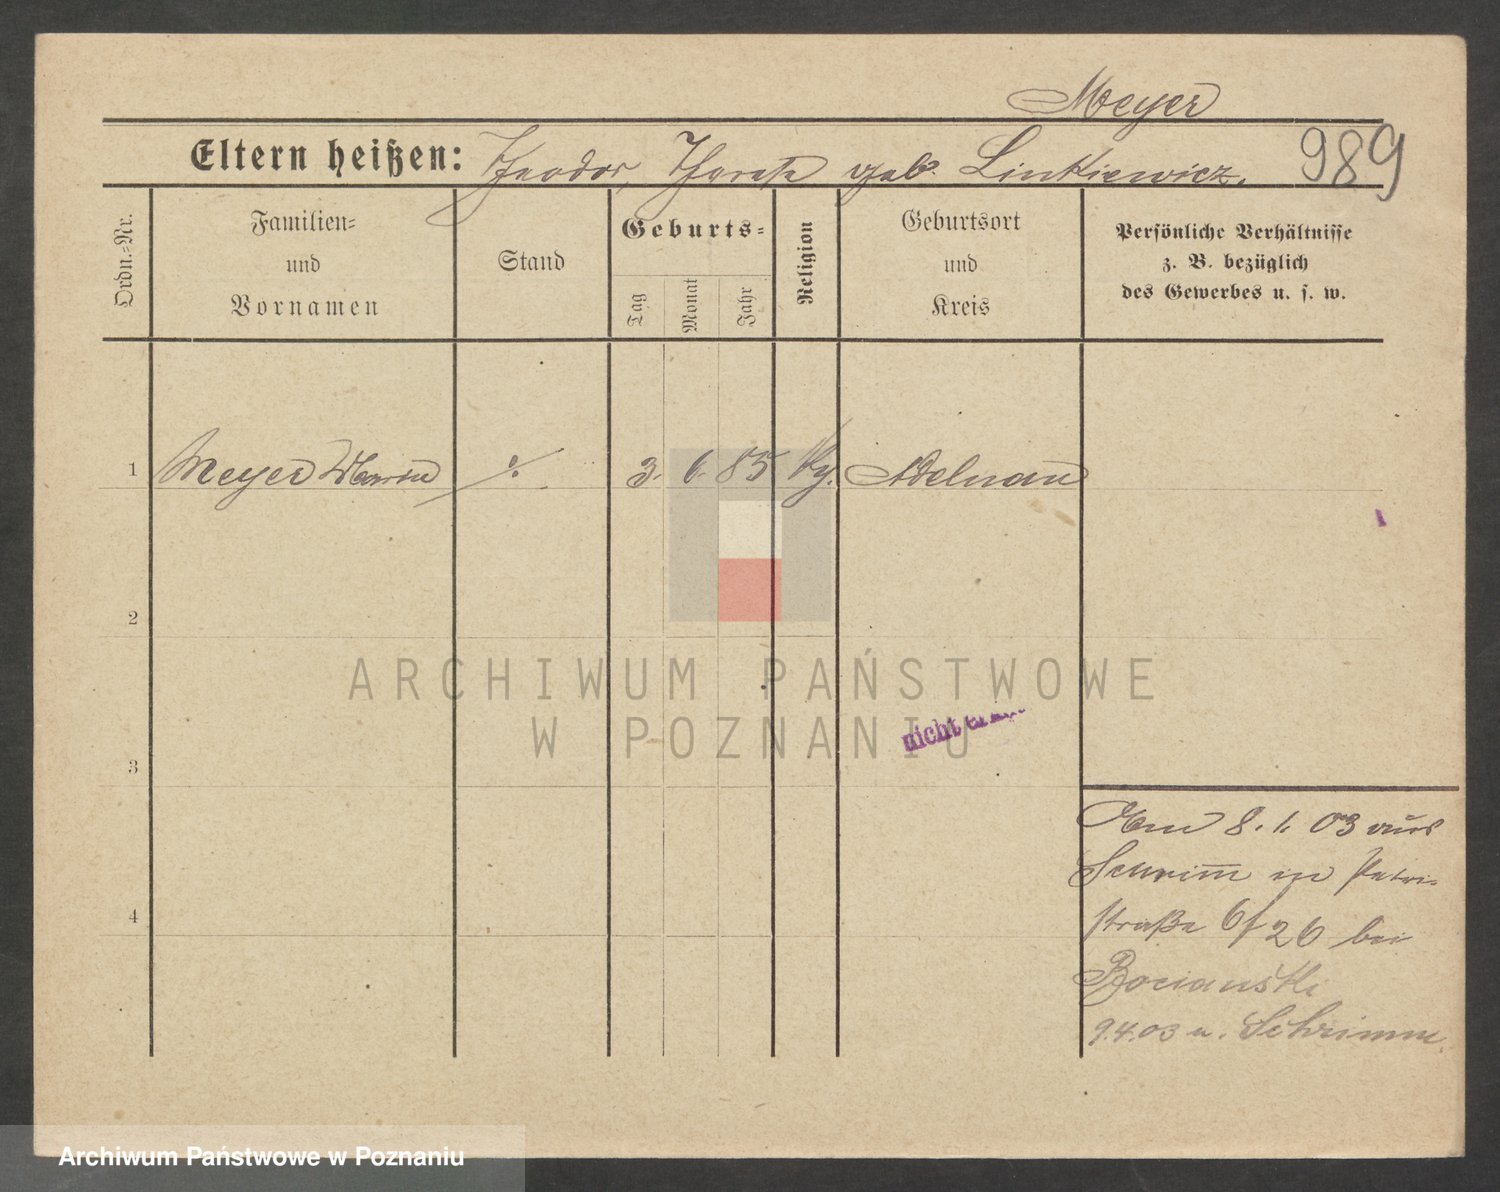 Meyer
Eltern heißen: Theodor, Therese geb. Linkiewicz. 989
Ordn.-Nr.
Familien-
und
Vornamen
Stand
Geburts-
Tag
Monat
Jahr
Religion
Geburtsort
und
Kreis
Persönliche Verhältnisse
z. B. bezüglich
des Gewerbes u. s. w.
1 Meyer Maria ·/. 3. 6. 85 Adelnau
2
3
4
nicht
8. 1. 03 aus
Schrimm in Petri-
straße 6/26 bei
Bocianski
9.4.03 n. Schrimm.
ARCHIWUM PAŃSTWOWE
W POZNANIU
Archiwum Państwowe w Poznaniu